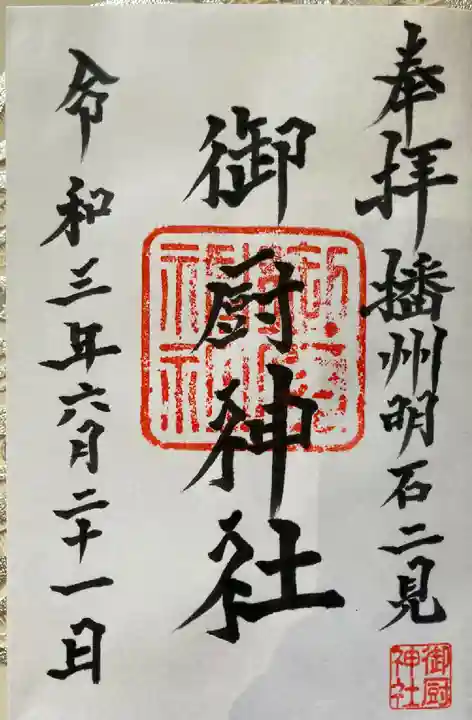 奉拝 播州明石二見
御厨神社
令和三年六月二十一日
御厨
神社